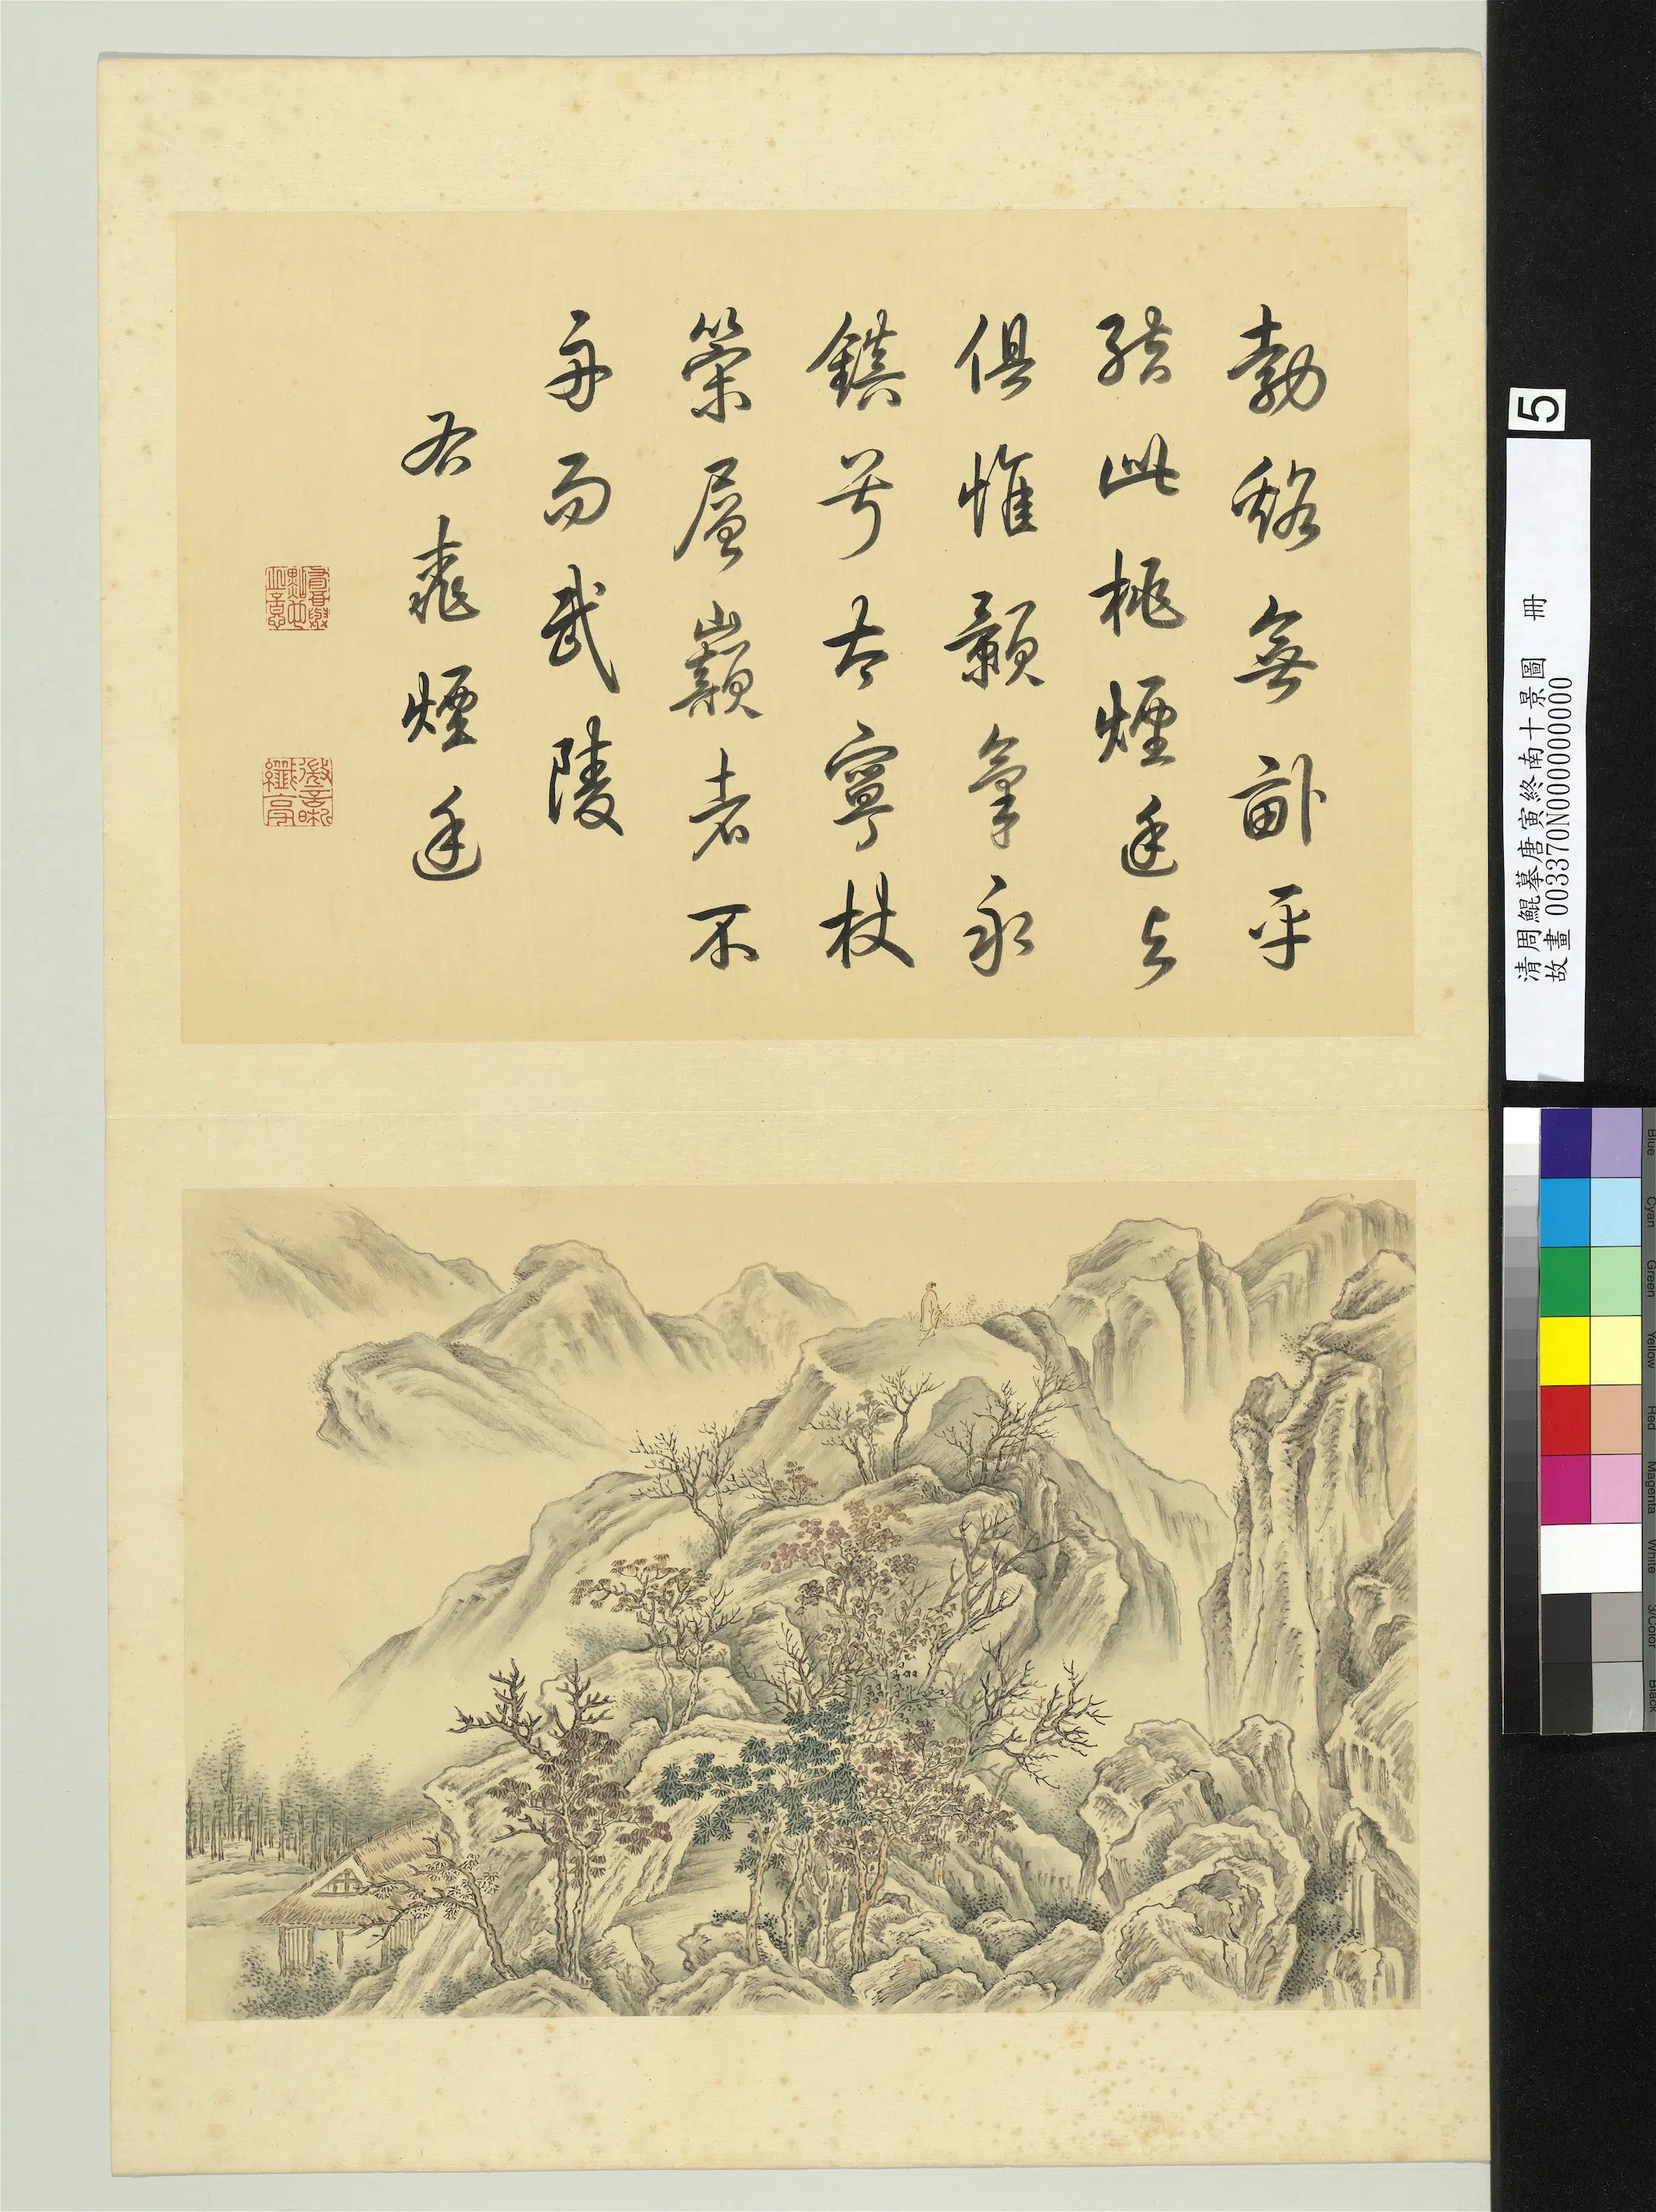 勃谿無卹乎
結此桃煙廷与
俱惟顥氣永
鎮兮太寧杖
策層巔者不
舟而武陵
右桃煙廷
5
清周鯤摹唐寅終南十景圖 冊
故畫 003370N000000000
Blue Cyan Green Yellow Red Magenta White 3/Color Black